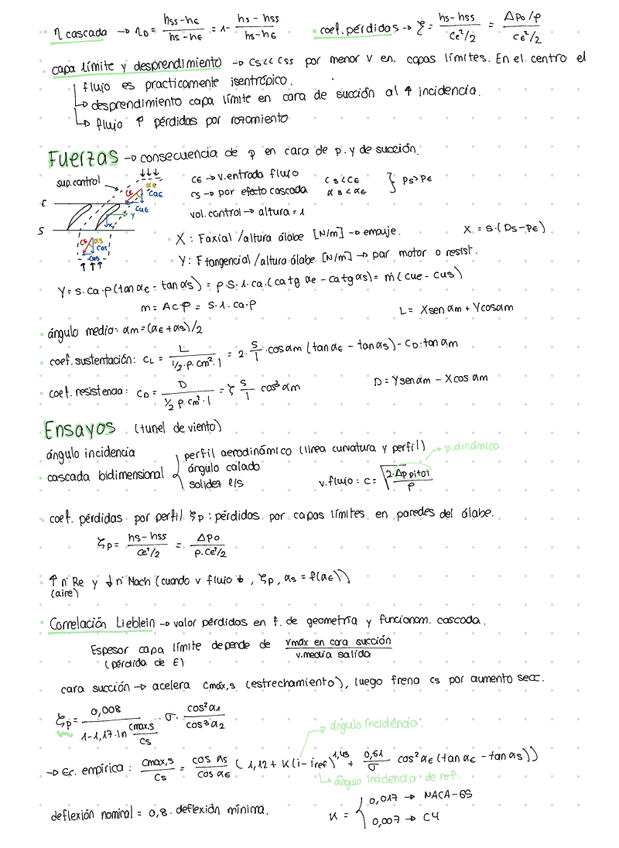 η cascada → ηD = (hss - hE)/(hs - hE) = 1 - (hs - hss)/(hs - hE)
coef. pérdidas → ζ = (hs - hss)/(cE²/2) = (Δpo/ρ)/(cE²/2)
capa límite y desprendimiento → cs << css por menor v en capas límites. En el centro el
flujo es practicamente isentrópico.
↳ desprendimiento capa límite en cara de succión al ↑ incidencia.
↳ flujo ↑ pérdidas por rozamiento
Fuerzas → consecuencia de p en cara de p. y de succión.
sup. control
cE → v. entrada flujo
cs → por efecto cascada
cs < cE
αs < αE
} ps > pE
vol. control → altura = 1
X: Faxial/altura álabe [N/m] → empuje.
X = s·(ps - pE)
Y: F tangencial/altura álabe [N/m] → par motor o resist.
Y = s·ca·ρ(tan αE - tan αs) = ρ·s·1·ca·(ca tg αE - ca tg αs) = ṁ(cuE - cus)
m = A c ρ = s·1·ca·ρ
L = X sen αm + Y cos αm
ángulo medio: αm = (αE + αs)/2
coef. sustentación: CL = L/(1/2·ρ·cm²·l) = 2·s/l·cos αm (tan αE - tan αs) - CD·tan αm
coef. resistencia: CD = D/(1/2 ρ·cm²·l) = ζ s/l cos³ αm
D = Y sen αm - X cos αm
Ensayos (tunel de viento)
ángulo incidencia
cascada bidimensional { perfil aerodinámico (línea curvatura y perfil)
ángulo calado
solidez l/s
p. dinámica
v. flujo: c = √(2·Δp pitot/ρ)
coef. pérdidas por perfil ζp: pérdidas por capas límites en paredes del álabe.
ζp = (hs - hss)/(cE²/2) = Δpo/(ρ·cE²/2)
↑ nº Re y ↓ nº Mach (cuando v flujo ↓, ζp, αs = f(αE))
(aire)
Correlación Lieblein → valor pérdidas en f. de geometría y funcionam. cascada.
Espesor capa límite depende de vmáx en cara succión / v. media salida
(pérdida de E)
cara succión → acelera cmáx,s (estrechamiento), luego frena cs por aumento secc.
ζp = 0,008/(1 - 1,17·ln (cmax,s/cs)) · σ · cos²α1/cos³α2
ángulo incidencia.
→ Ec. empírica: cmax,s/cs = cos αs/cos αE (1,12 + K(i - iref)^1,43 + 0,61/σ cos² αE (tan αE - tan αs))
↳ ángulo incidencia de ref.
deflexión nominal = 0,8·deflexión mínima.
K = { 0,017 → NACA-65
0,007 → C4